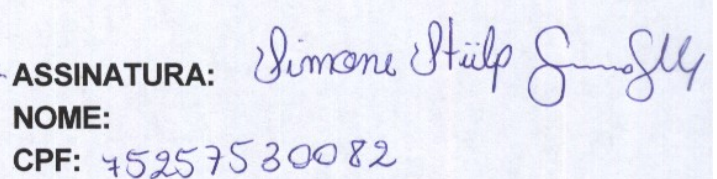 ASSINATURA: Simone Stülp
NOME:
CPF: 75257530082